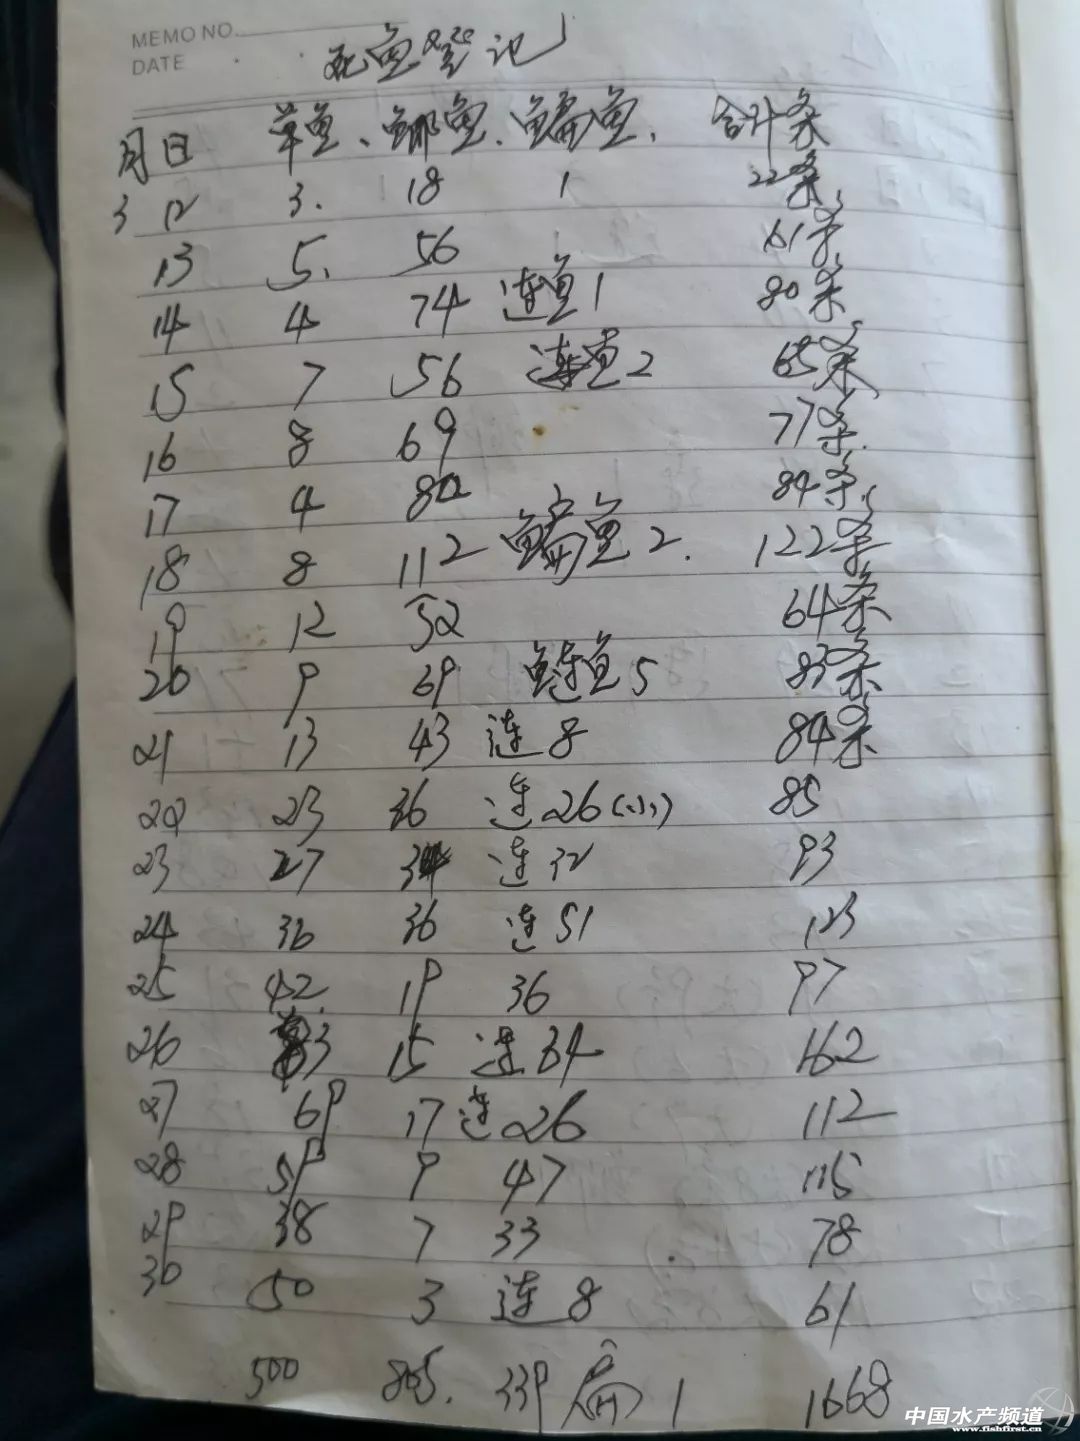 MEMO NO.
DATE
死鱼登记
月日 草鱼、鲫鱼、鳊鱼、 合计条
3 12 3. 18 1 22条
13 5. 56 61条
14 4 74 连鱼1 80条
15 7 56 连鱼2 65条
16 8 69 77条.
17 4 80 84条
18 8 112 鳊鱼2. 122条
19 12 52 64条
20 9 69 鲢鱼5 83条
21 13 43 连8 84条
22 23 36 连26(小) 85
23 27 34 连32 93
24 36 36 连51 123
25 42. 19 36 97
26 草83 15 连34 162
27 69 17 连26 112
28 59 9 47 115
29 38 7 33 78
30 50 3 连8 61
500 805. 339 扁1 1668
中国水产频道
www.fishfirst.cn